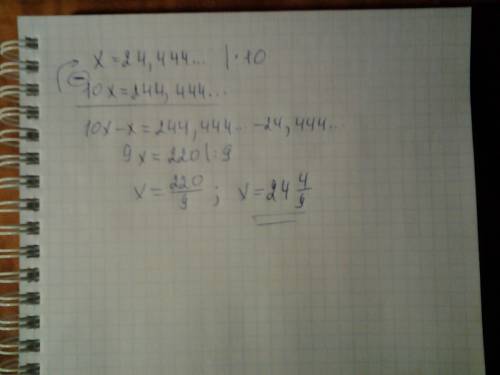 x = 24,444... | · 10
(-) 10x = 244,444...
10x - x = 244,444... - 24,444...
9x = 220 | : 9
x = 220/9 ; x = 24 4/9